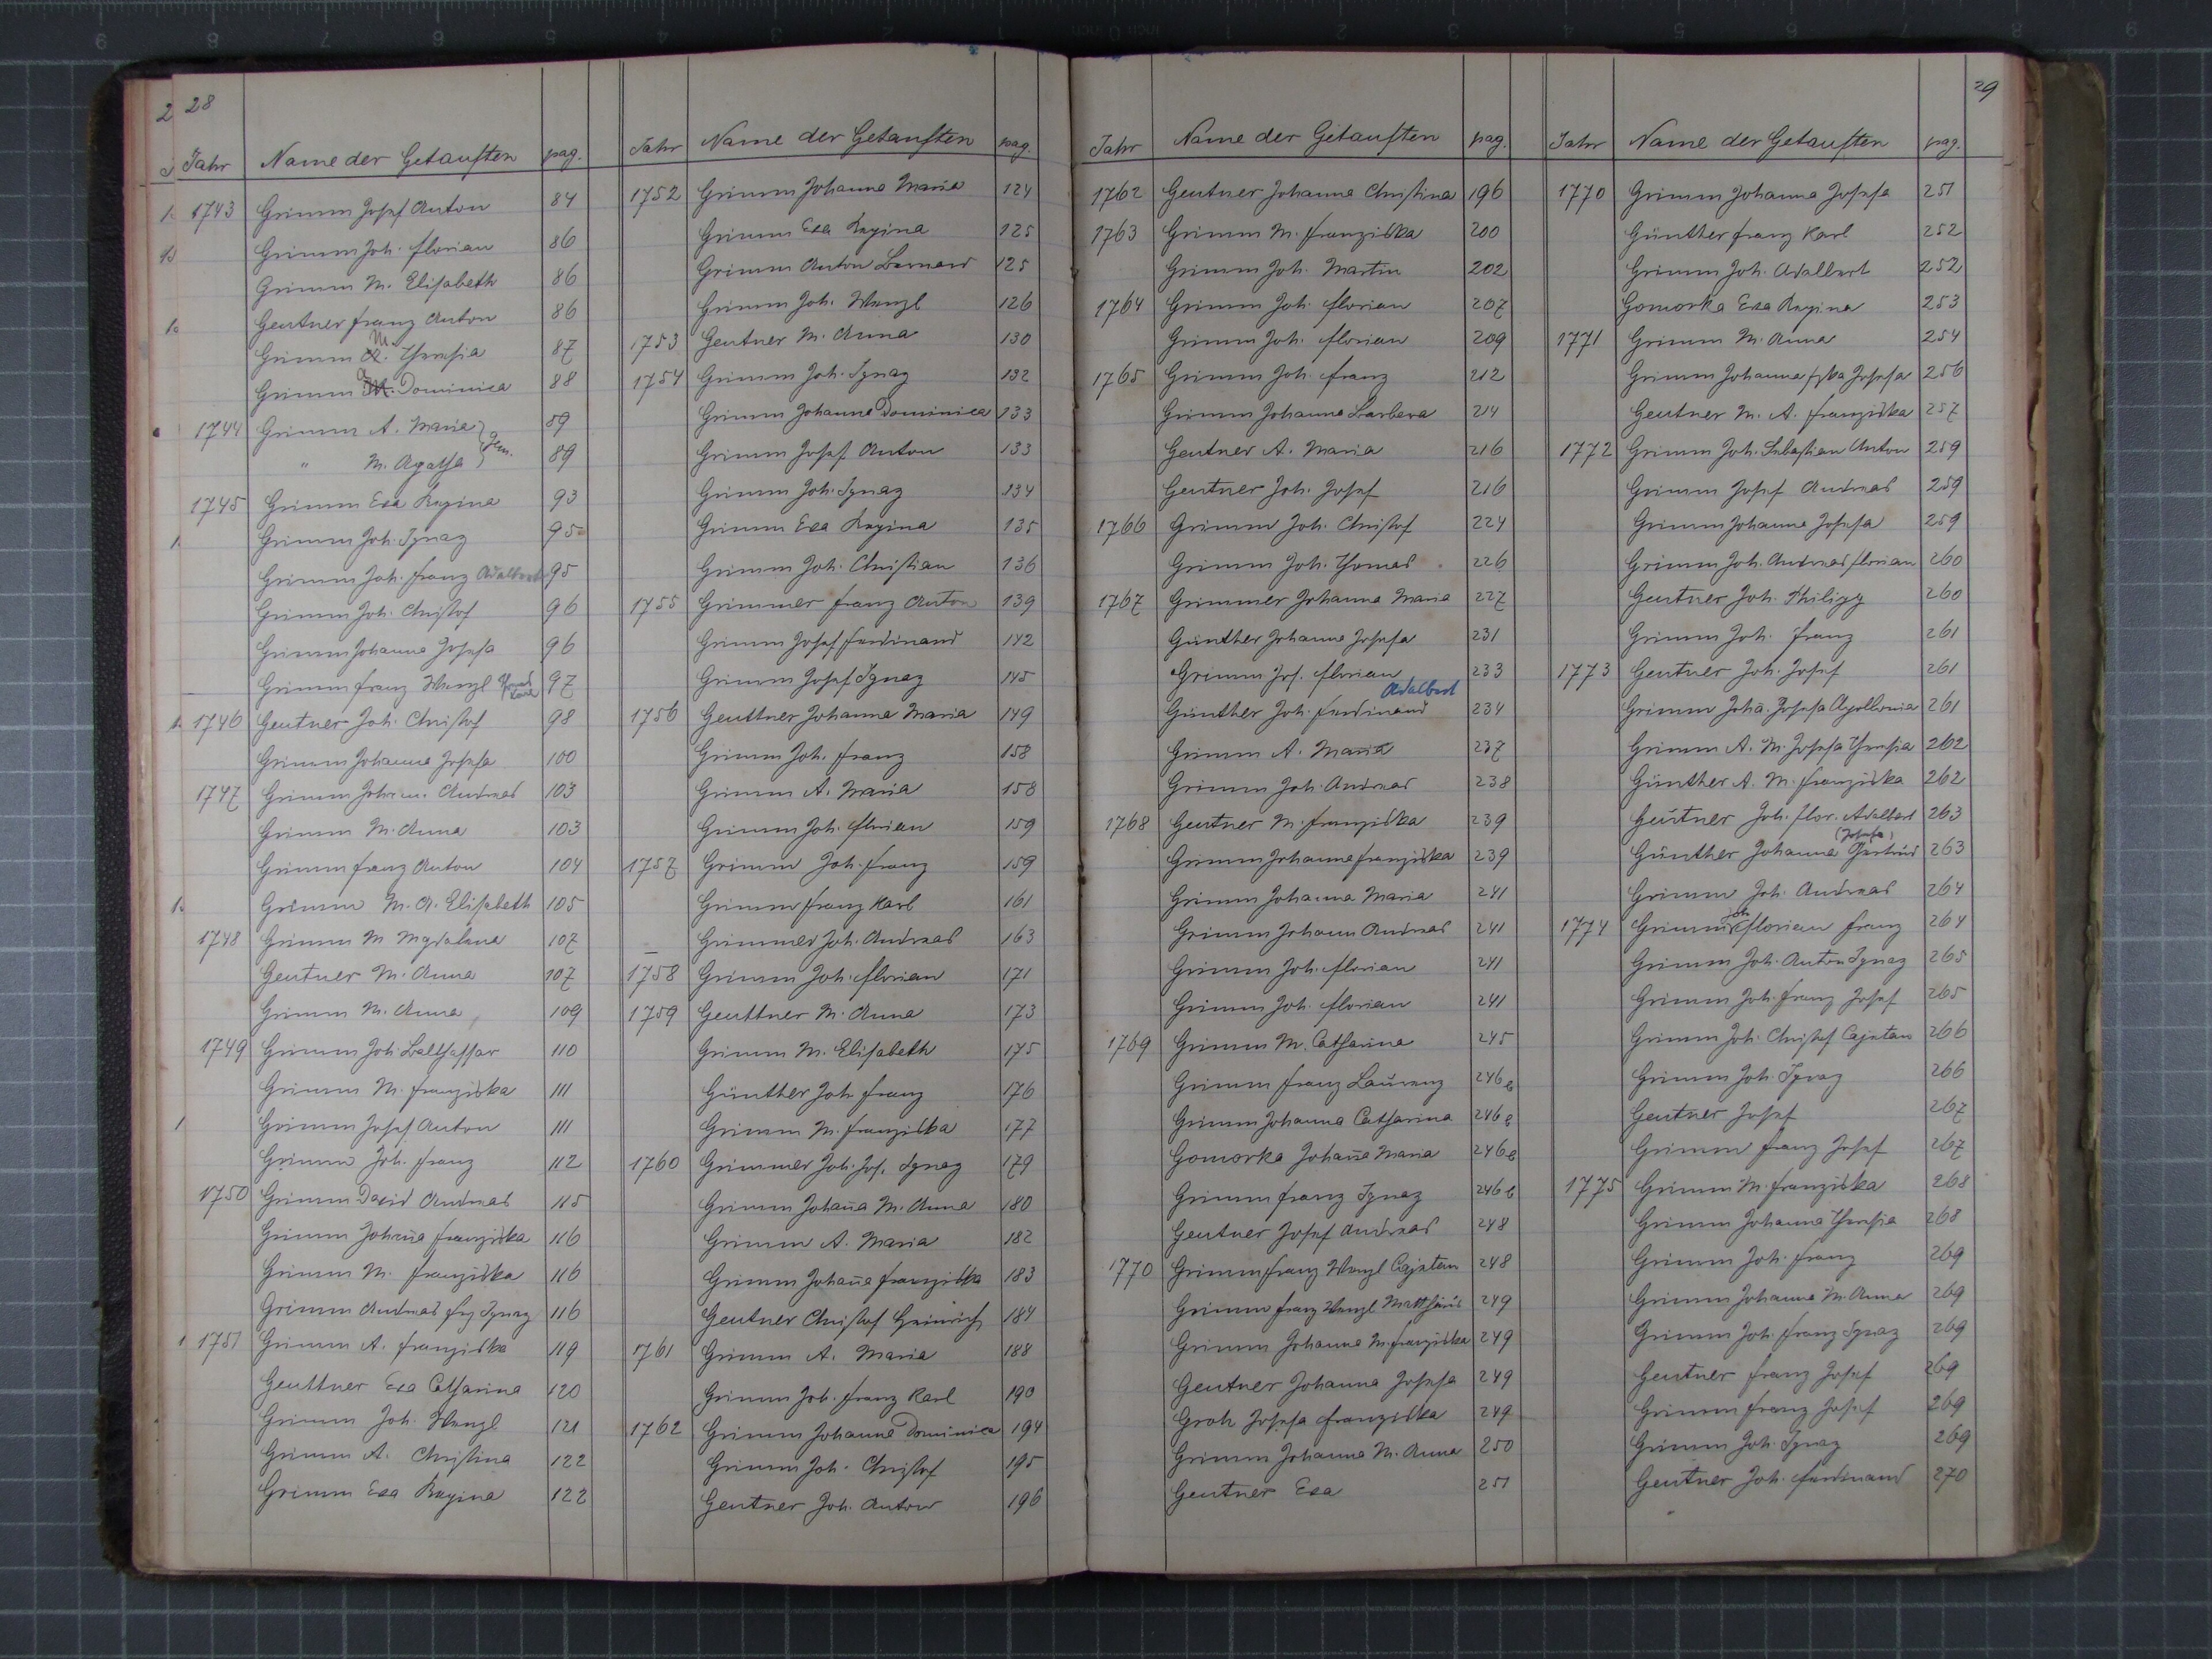 28
Jahr Name der Getauften pag.
1743 Grimm Josef Anton 84
Grimm Joh. Florian 86
Grimm M. Elisabeth 86
Gentner Franz Anton 86
Grimm M. Theresia 87
Grimm A. Dominica 88
1744 Grimm A. Maria 89
" M. Agatha } Gem. 89
1745 Grimm Eva Regina 93
Grimm Joh. Ignaz 95
Grimm Joh. Franz Adalbert 95
Grimm Joh. Christof 96
Grimm Johanna Josefa 96
Grimm Franz Wenzl 97
1746 Gentner Joh. Christof 98
Grimm Johanna Josefa 100
1747 Grimm Johann Andreas 103
Grimm M. Anna 103
Grimm Franz Anton 104
Grimm M. A. Elisabeth 105
1748 Grimm M Mgdalena 107
Gentner M. Anna 107
Grimm M. Anna 109
1749 Grimm Joh. Balthassar 110
Grimm M. Franziska 111
Grimm Josef Anton 111
Grimm Joh. Franz 112
1750 Grimm David Andreas 115
Grimm Johaña Franziska 116
Grimm M. Franziska 116
Grimm Andreas Frz Ignaz 116
1751 Grimm A. Franziska 119
Genttner Eva Catharina 120
Grimm Joh. Wenzl 121
Grimm A. Christina 122
Grimm Eva Regina 122
Jahr Name der Getauften pag.
1752 Grimm Johanna Maria 124
Grimm Eva Regina 125
Grimm Anton Bernard 125
Grimm Joh. Wenzl 126
1753 Gentner M. Anna 130
1754 Grimm Joh. Ignaz 132
Grimm Johanna Dominica 133
Grimm Josef Anton 133
Grimm Joh. Ignaz 134
Grimm Eva Regina 135
Grimm Joh. Christian 136
1755 Grimmer Franz Anton 139
Grimm Josef Ferdinand 142
Grimm Josef Ignaz 145
1756 Genttner Johanna Maria 149
Grimm Joh. Franz 158
Grimm A. Maria 158
Grimm Joh. Florian 159
1757 Grimm Joh. Franz 159
Grimm Franz Karl 161
Grimmer Joh. Andreas 163
1758 Grimm Joh. Florian 171
1759 Genttner M. Anna 173
Grimm M. Elisabeth 175
Günther Joh Franz 176
Grimm M. Franziska 177
1760 Grimmer Joh. Jos. Ignaz 179
Grimm Johaña M. Anna 180
Grimm A. Maria 182
Grimm Johaña Franziska 183
Gentner Christof Heinrich 184
1761 Grimm A. Maria 188
Grimm Joh. Franz Karl 190
1762 Grimm Johanna Dominica 194
Grimm Joh. Christof 195
Gentner Joh. Anton 196
Jahr Name der Getauften pag.
1762 Gentner Johanna Christina 196
1763 Grimm M. Franziska 200
Grimm Joh. Martin 202
1764 Grimm Joh. Florian 207
Grimm Joh. Florian 209
1765 Grimm Joh. Franz 212
Grimm Johanna Barbara 214
Gentner A. Maria 216
Gentner Joh. Josef 216
1766 Grimm Joh. Christof 224
Grimm Joh. Thomas 226
1767 Grimmer Johanna Maria 227
Günther Johanna Josefa 231
Grimm Jos. Florian 233
Adalbert
Günther Joh. Ferdinand 234
Grimm A. Maria 237
Grimm Joh. Andreas 238
1768 Gentner M. Franziska 239
Grimm Johanna Franziska 239
Grimm Johanna Maria 241
Grimm Johann Andreas 241
Grimm Joh. Florian 241
Grimm Joh. Florian 241
1769 Grimm M. Catharina 245
Grimm Franz Laurenz 246b
Grimm Johanna Catharina 246b
Gomorka Johaña Maria 246b
Grimm Franz Ignaz 246b
Gentner Josef Andreas 248
1770 Grimm Franz Wenzl Cajetan 248
Grimm Franz Wenzl Matthäus 249
Grimm Johanna M. Franziska 249
Gentner Johanna Josefa 249
Groh Josefa Franziska 249
Grimm Johanna M. Anna 250
Gentner Eva 251
29
Jahr Name der Getauften pag.
1770 Grimm Johanna Josefa 251
Günther Franz Karl 252
Grimm Joh. Adalbert 252
Gomorka Eva Regina 253
1771 Grimm M. Anna 254
Grimm Johanna Fzka Josefa 256
Gentner M. A. Franziska 257
1772 Grimm Joh. Sebastian Anton 259
Grimm Josef Andreas 259
Grimm Johanna Josefa 259
Grimm Joh. Andreas Florian 260
Gentner Joh. Philipp 260
Grimm Joh. Franz 261
1773 Gentner Joh. Josef 261
Grimm Johā. Josefa Apollonia 261
Grimm A. M. Josefa Theresia 262
Günther A. M. Franziska 262
Gentner Joh. Flor. Adalbert 263
(Josefa)
Günther Johanna Gertrud 263
Grimm Joh. Andreas 264
1774 Grimm Joh Florian Franz 264
Grimm Joh. Anton Ignaz 265
Grimm Joh. Franz Josef 265
Grimm Joh. Christof Cajetan 266
Grimm Joh. Ignaz 266
Gentner Josef 267
Grimm Franz Josef 267
1775 Grimm M. Franziska 268
Grimm Johanna Theresia 268
Grimm Joh. Franz 269
Grimm Johanna M. Anna 269
Grimm Joh. Franz Ignaz 269
Gentner Franz Josef 269
Grimm Franz Josef 269
Grimm Joh. Ignaz 269
Gentner Joh. Ferdinand 270